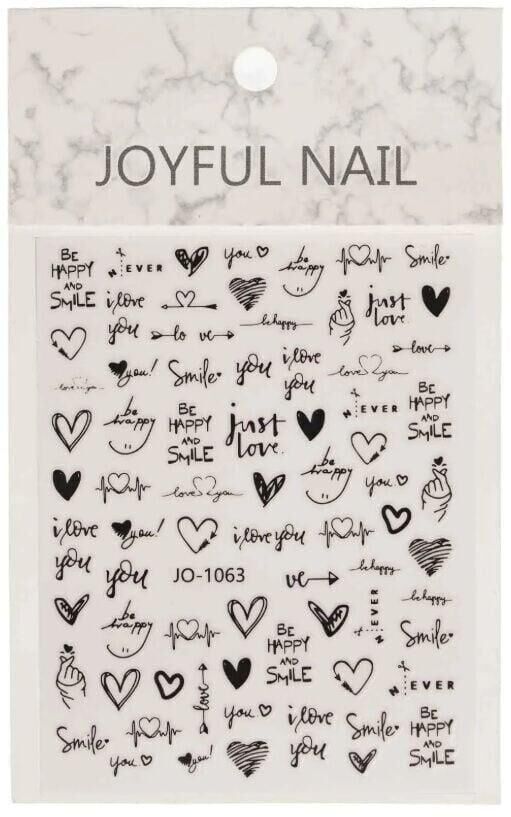 JOYFUL NAIL
BE
HAPPY
AND
SMILE
NEVER
you
be
happy
Smile
i love
you
just
love.
be happy
lo ve
love
you!
Smile
you
i love
you
love you
love you
be
happy
BE
HAPPY
AND
SMILE
just
love.
NEVER
BE
HAPPY
AND
SMILE
be
happy
you
love you
i love
you
you!
i love you
you
JO-1063
ve
be happy
be happy
be
happy
NEVER
Smile
BE
HAPPY
AND
SMILE
love
NEVER
Smile
you
i love
you
Smile
BE
HAPPY
AND
SMILE
you
you!